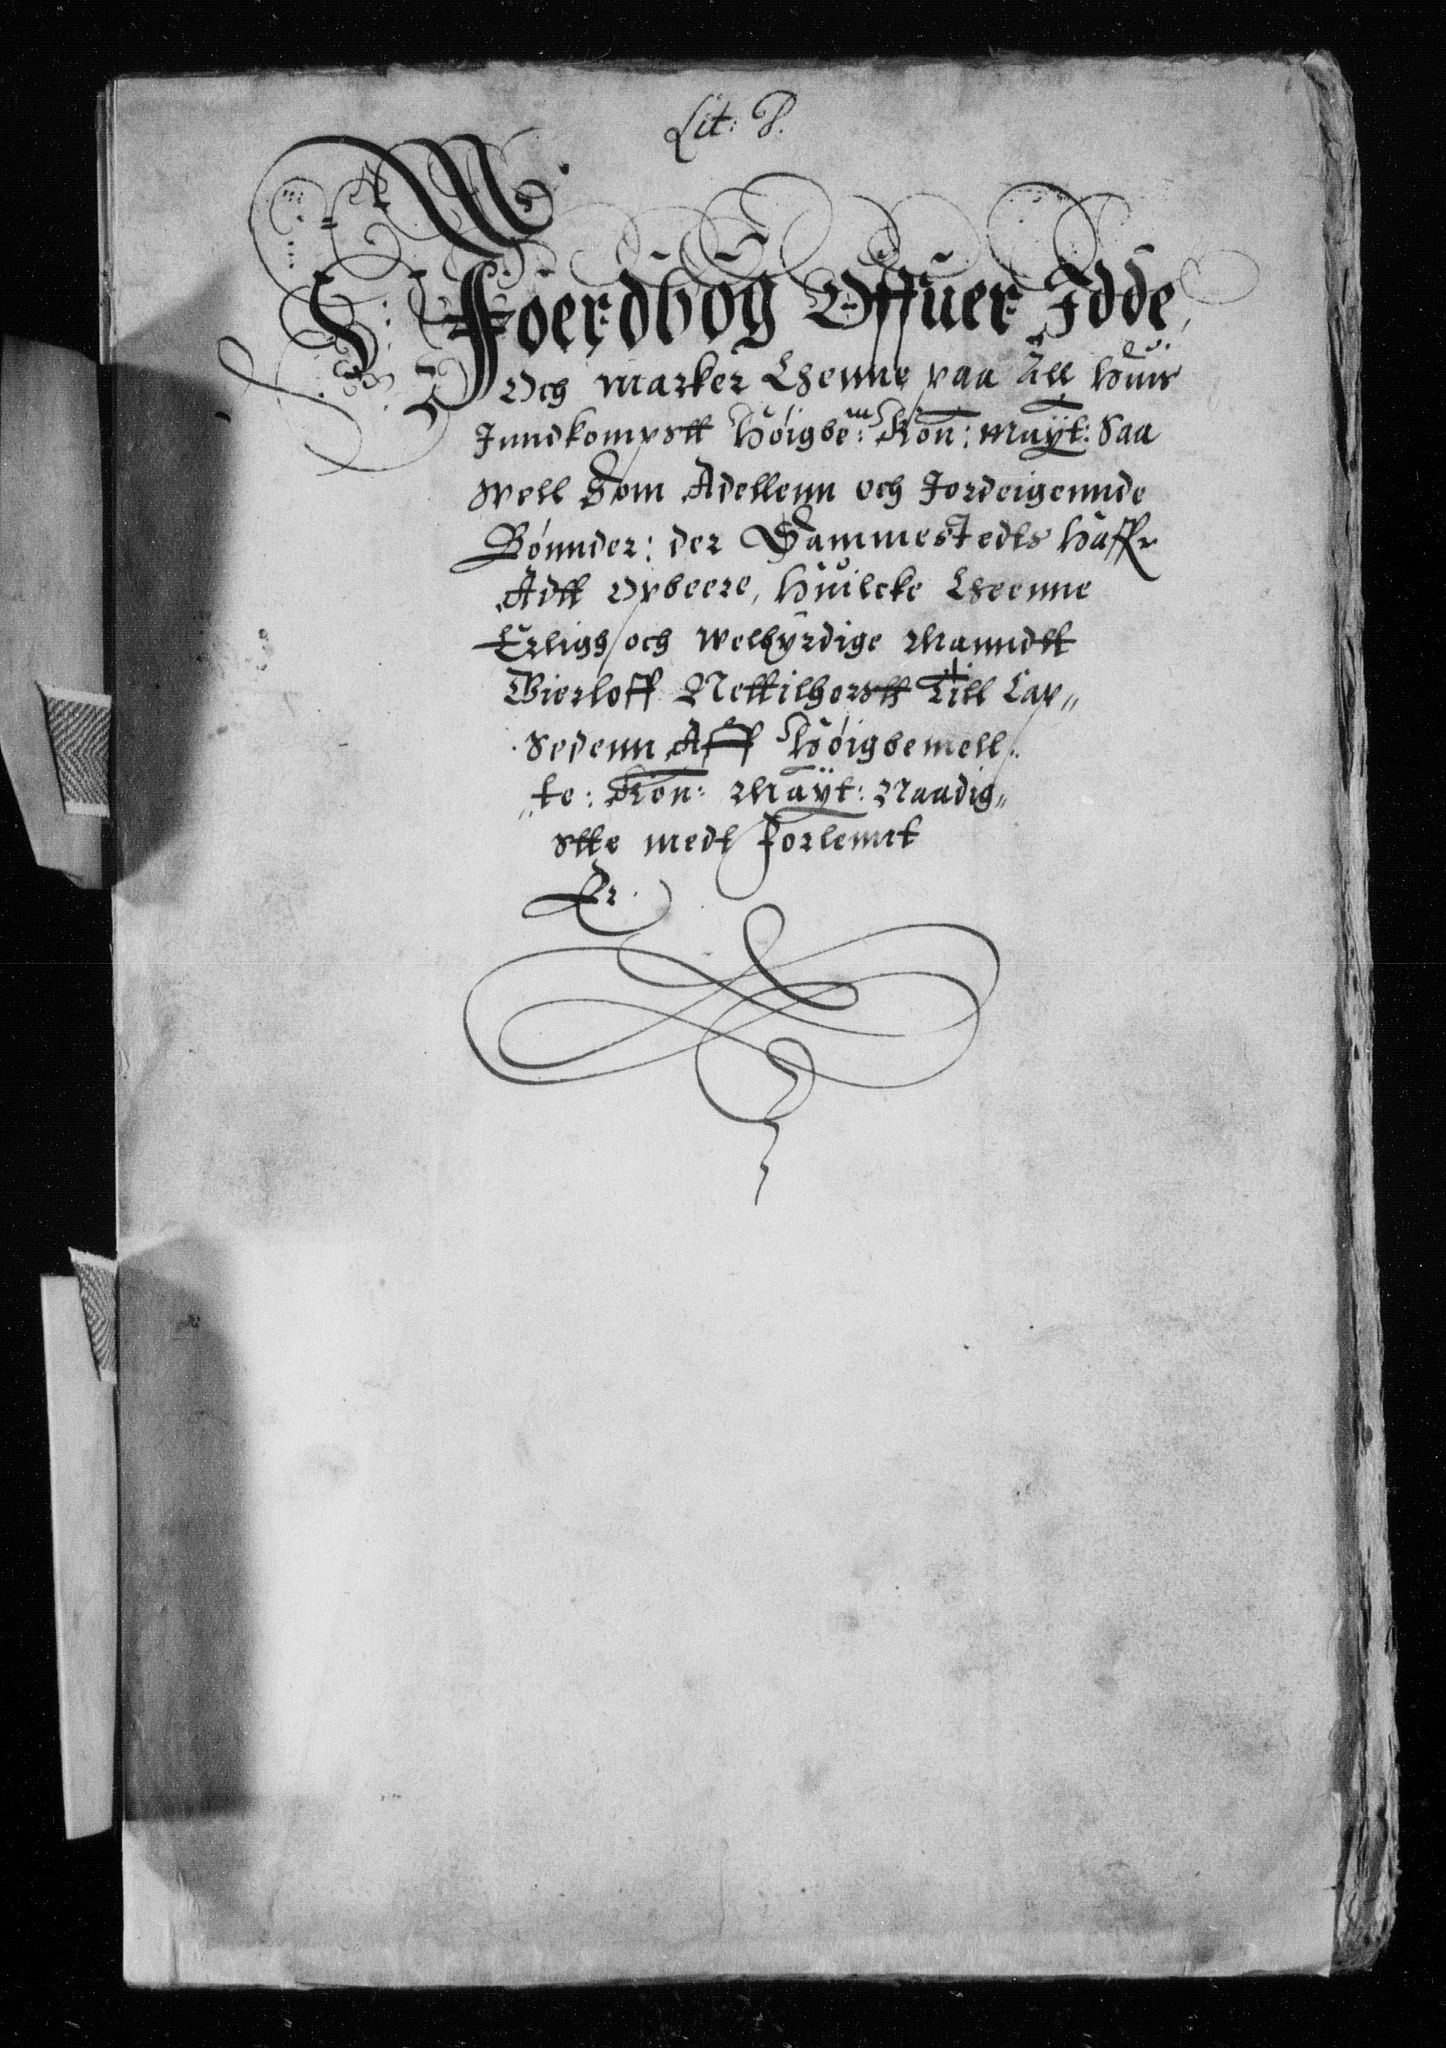 Lit: P.
Joerdbog Offuer Idde
Och Marker Lhenne paa All Huis
Inndkompstt Høigbe:m Kon: Mayt: Saa
well Som Adellenn och Jordeigennde
Bønnder: der Sammestedts Haffr
Adtt opbeere, Huilcke Lheenne
Erligh och welbyrdige Manndtt
Gierloff Nettilhorstt Till Cap„
sedenn Aff Høigbemell„
te: Kon: Mayt: Naadig„
stte medt Forlennt
Er.